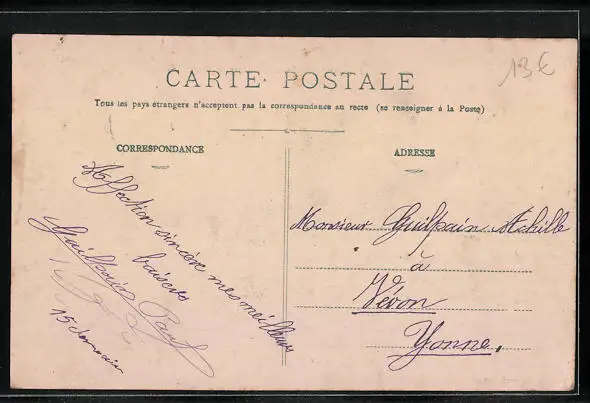 13€
CARTE POSTALE
Tous les pays étrangers n'acceptent pas la correspondance au recto (se renseigner à la Poste)
CORRESPONDANCE
Affection sincère mes meilleurs
baisers
Guilpain Paul
15
ADRESSE
Monsieur Guilpain Achille
à
Véron
Yonne.